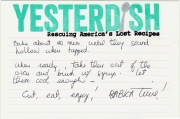 YESTERDISH
Rescuing America's Lost Recipes
Bake about 40 min until they sound
hollow when tapped.
When ready, take them out of the
oven and brush w/ syrup. Let
them cool enough -
Cut, eat, enjoy!